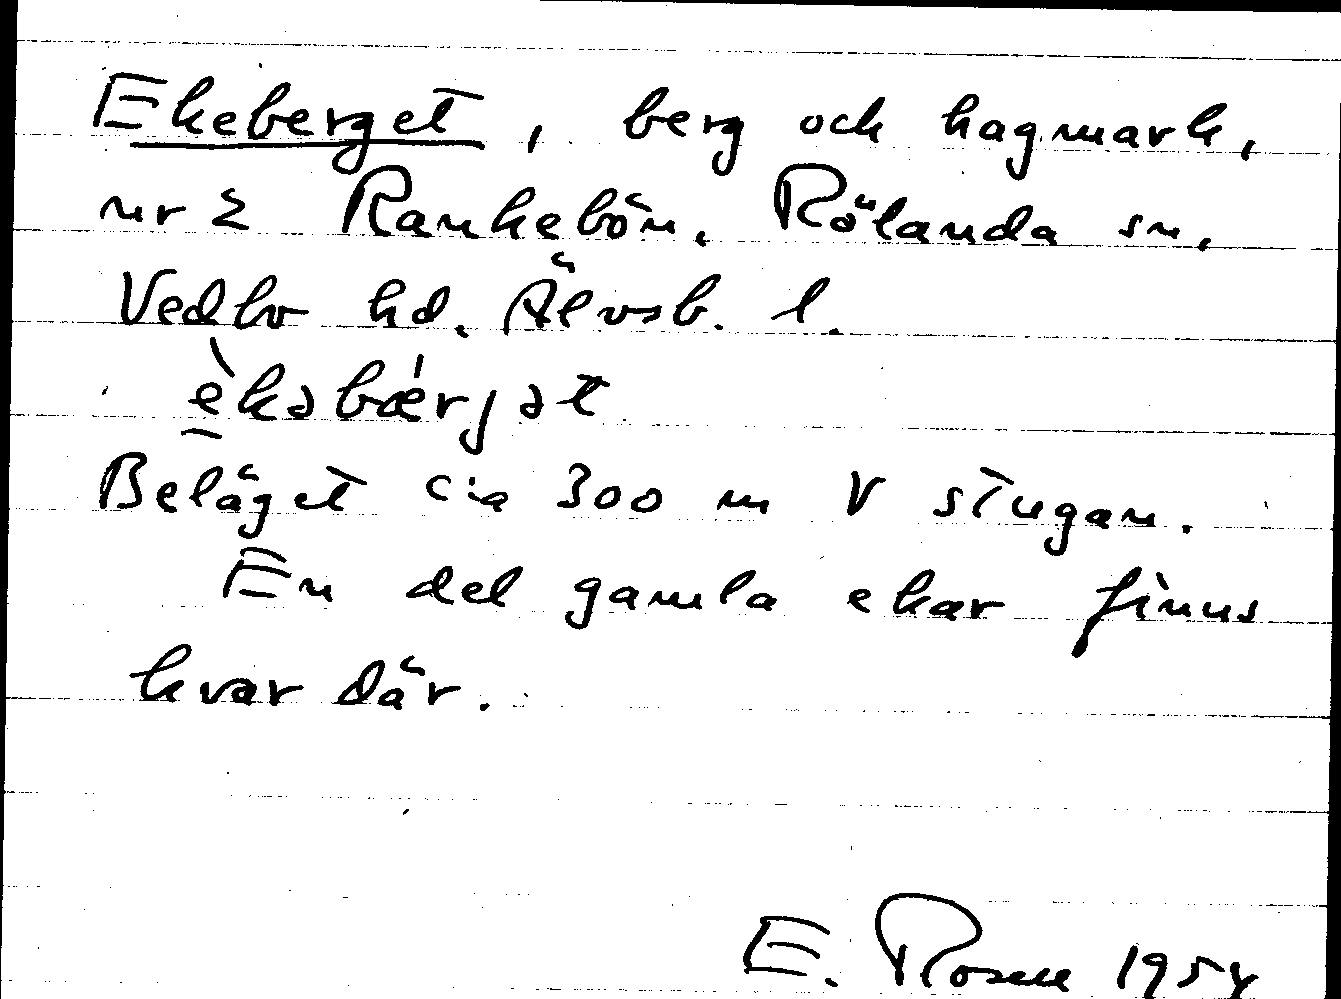 Ekeberget, berg och hagmark,
nr 2 Rankebön. Rölanda sn,
Vedbo hd. Älvsb. l.
è̱kəbǽrjət
Beläget c:a 300 m V stugan.
En del gamla ekar finns
kvar där.
E. Rosell 1954